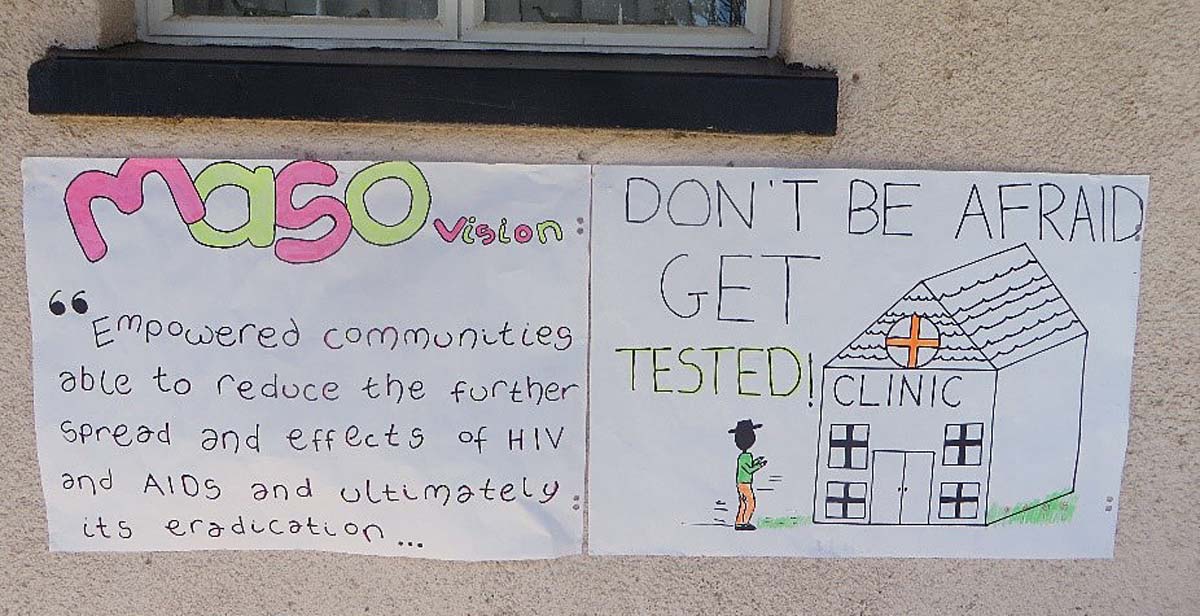 maso vision:
"Empowered communities
able to reduce the further
spread and effects of HIV
and AIDS and ultimately
its eradication...
DON'T BE AFRAID
GET
TESTED!
CLINIC